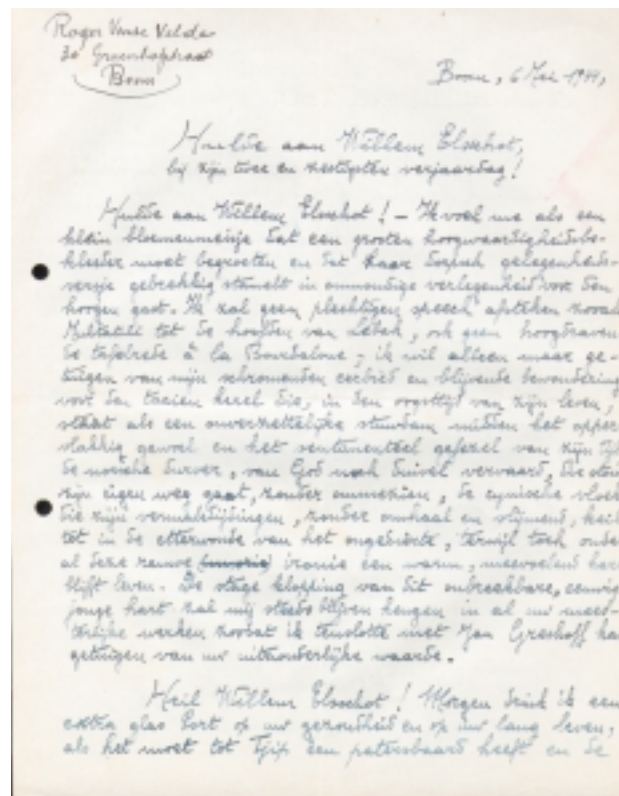 Roger Vande Velde
30 Groenhofstraat
Boom
Boom, 6 Mei 1944,
Hulde aan Willem Elsschot,
bij zijn twee en zestigsten verjaardag!
Hulde aan Willem Elsschot! – Ik voel me als een
klein bloemenmeisje dat een groten hoogwaardigheidsbe-
kleder moet begroeten en dat haar dorpsch gelegenheids-
versje gebrekkig stamelt in onmondige verlegenheid voor den
hoogen gast. Ik zal geen plechtigen speech afsteken zooals
Multatuli tot de hoofden van Lebak, ook geen hoogdraven
de tafelrede à la Bourdaloue; ik wil alleen maar ge-
tuigen van mijn schromenden eerbied en blijvende bewondering
voor den taaien kerel die, in den oogsttijd van zijn leven,
staat als een onverzettelijke stuwdam midden het opper
vlakkig gewoel en het sentimenteel gefezel van zijn tijd
de norsche durver, van God noch duivel vervaard, die stoer
zijn eigen weg gaat, zonder ommezien, de cynische vloeker
die zijn vermaledijdingen, zonder omhaal en vlijmend, keilt
tot in de etterwonde van het ongedierte, terwijl toch onder
al deze rauwe ironie een warm, meevoelend hart
blijft leven. De stage klopping van dit onbreekbare, eeuwig
jonge hart zal mij steeds blijven heugen in al uw mees-
terlijke werken zoodat ik tenslotte met Jan Greshoff kan
getuigen van uw uitzonderlijke waarde.
Heil Willem Elsschot! Morgen drink ik een
extra glas Port op uw gezondheid en op uw lang leven,
als het moet tot Tjip een patersbaard heeft en de